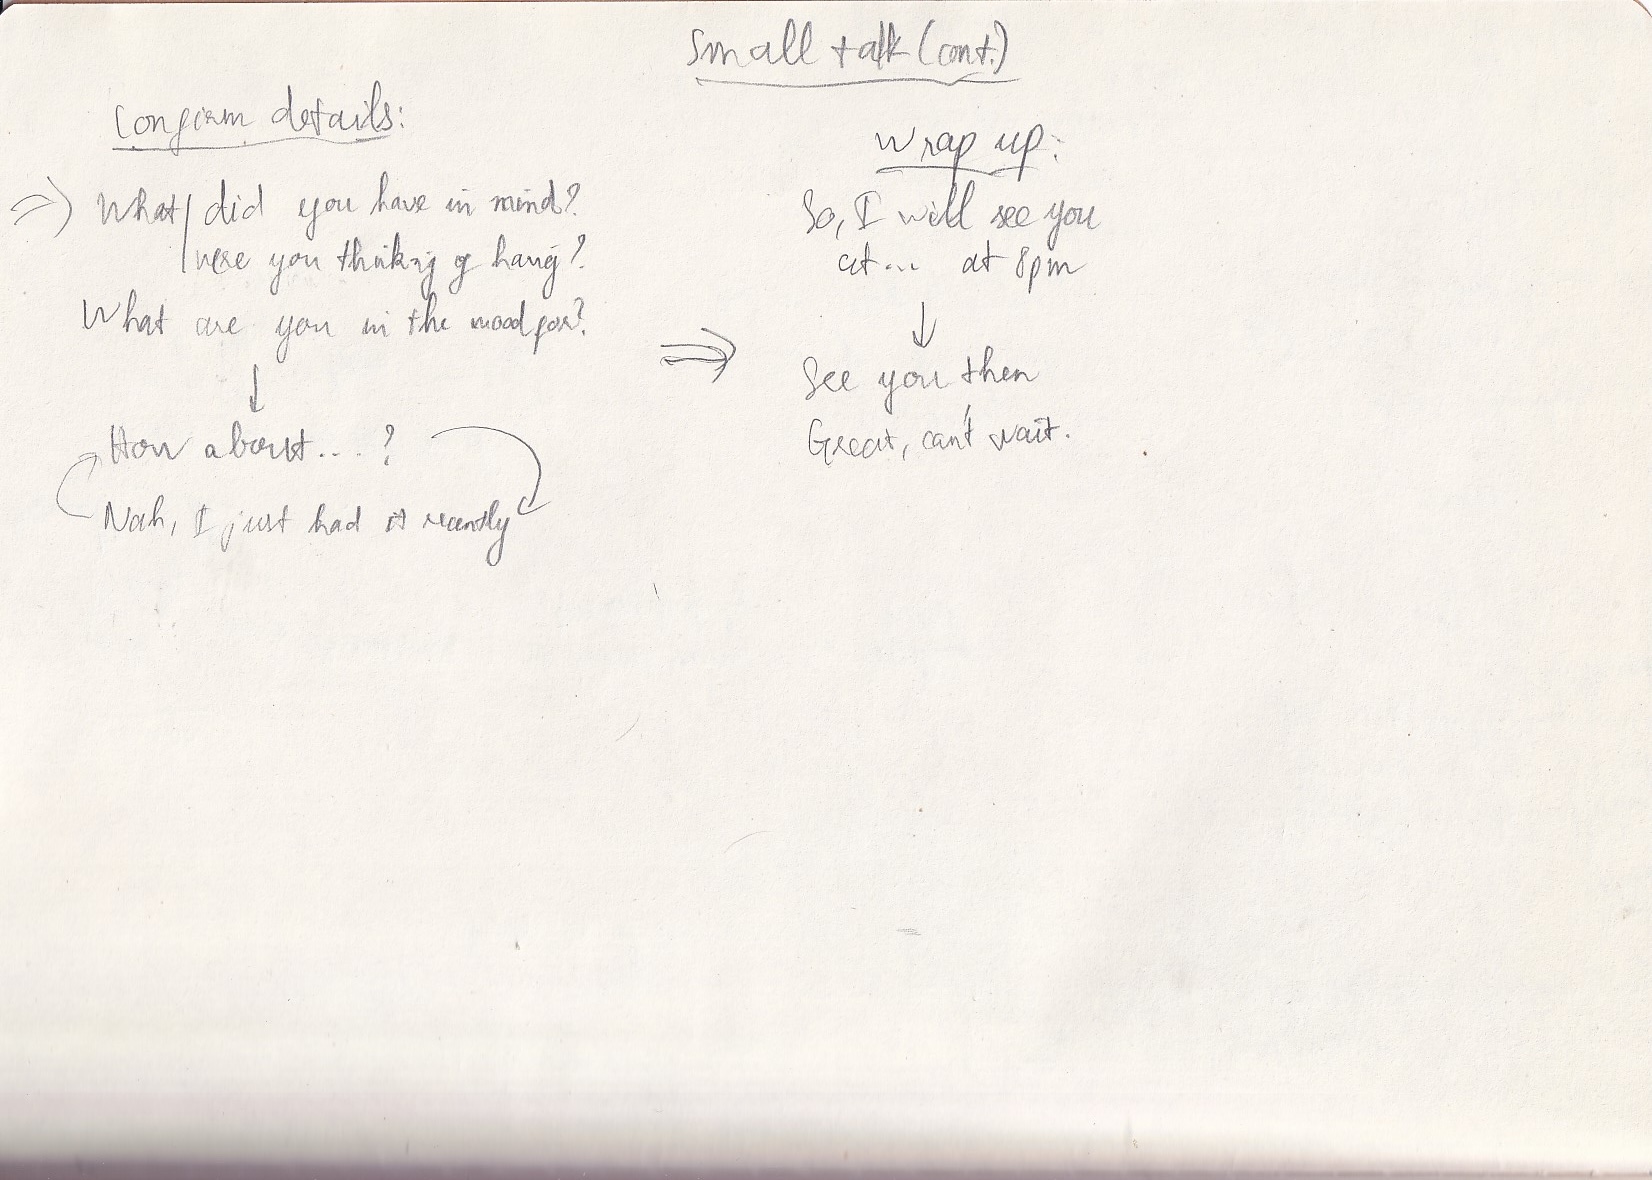 Small talk (cont.)
Confirm details:
What did you have in mind?
were you thinking of having?
What are you in the mood for?
How about...?
Nah, I just had it recently
Wrap up:
So, I will see you
at... at 8pm
See you then
Great, can't wait.